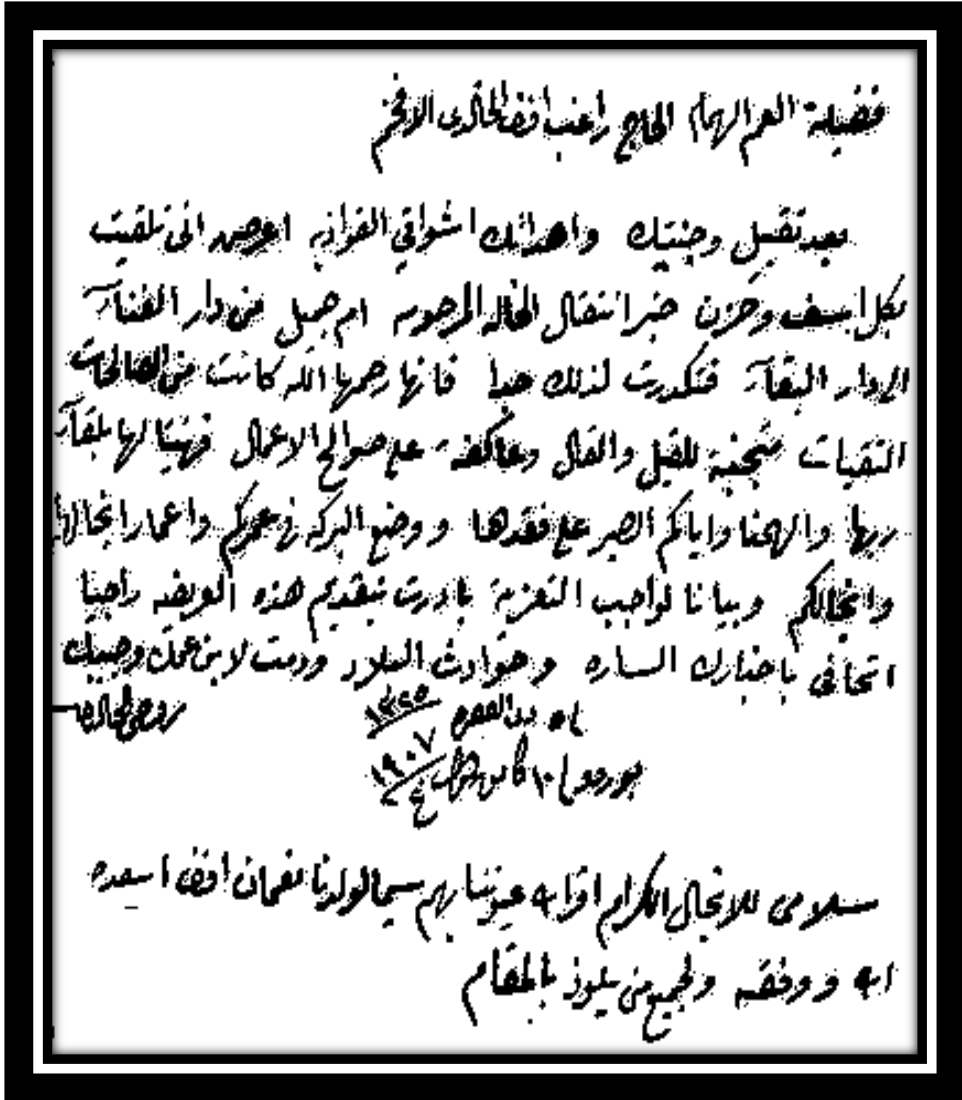 فضيلة العم الهمام الحاج راغب افندي الخالدي الافخم
بعد تقبيل وجنتيك واهدائك اشواقي الفؤاديه اعرض اني تلقيت
بكل اسف وحزن خبر انتقال الخاله المرحومه ام جميل من دار الفناء
الى دار البقاء فتكدرت لذلك جدا فانها رحمها الله كانت من الصالحات
التقيات متجنبة للقيل والقال وعاكفة على صوالح الاعمال فهنيئا لها بلقاء
ربها والهمنا واياكم الصبر على فقدها ووضع البركه في عمركم واعمار انجالها
وانجالكم وبيانا لواجب التعزية بادرت بتقديم هذه العريضه راجيا
اتحافي باخبارك الساره وحوادث البلاد ودمت لابن عمك وحبيبك
روحي الخالدي
ذي القعده ١٣٢٥
بوردو ١٠ كانون ١٩٠٧
سلامي للانجال الكرام اقر الله عيوننا بهم سيما لولدنا نعمان افندي اسعده
الله ووفقه ولجميع من يلوذ بالمقام